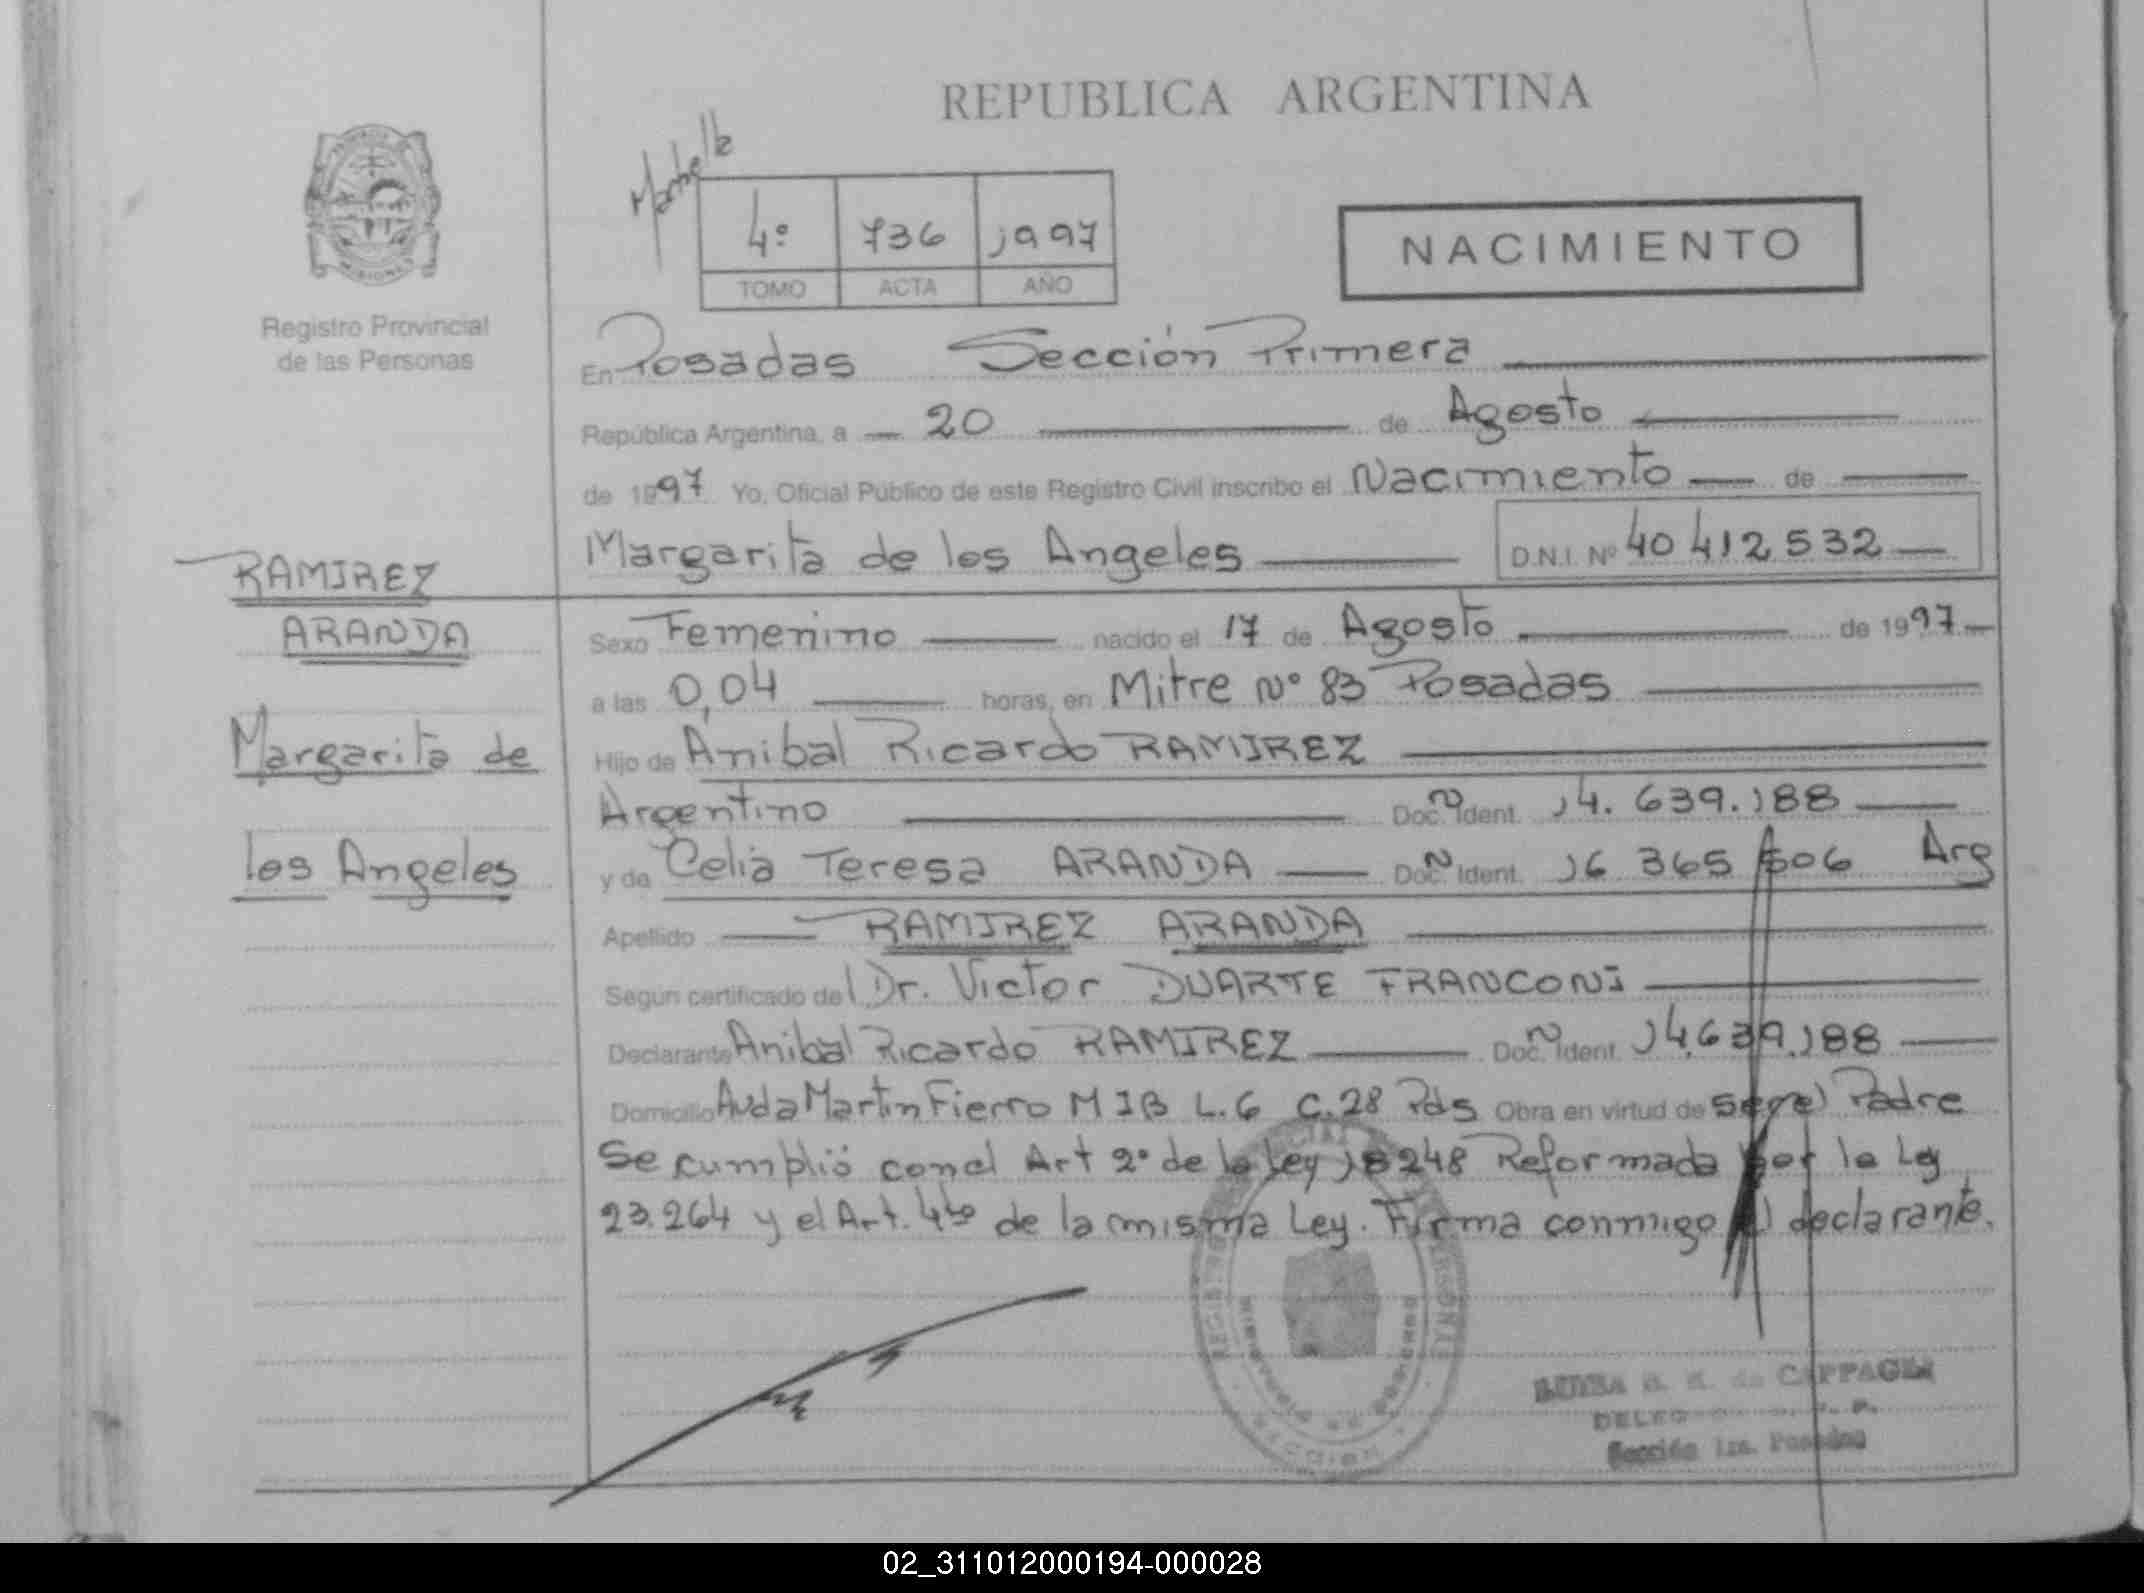 REPUBLICA ARGENTINA
4º 736 1997
TOMO ACTA AÑO
NACIMIENTO
MISIONES
Registro Provincial
de las Personas
En Posadas Sección Primera
República Argentina, a 20 de Agosto
de 1997 Yo, Oficial Público de este Registro Civil inscribo el Nacimiento de
Margarita de los Angeles D.N.I. Nº 40 412 532
RAMIREZ
ARANDA
Margarita de
los Angeles
Sexo Femenino nacido el 17 de Agosto de 1997
a las 0,04 horas, en Mitre Nº 83 Posadas
Hijo de Anibal Ricardo RAMIREZ
Argentino Doc. N Ident. 14.639.188
y de Celia Teresa ARANDA Doc. N Ident. 16 365 Arg
Apellido RAMIREZ ARANDA
Según certificado del Dr. Victor DUARTE FRANCONI
Declarante Anibal Ricardo RAMIREZ Doc. N Ident. 14.639.188
Domicilio Avda Martin Fierro M IB L.6 C.28 Pds Obra en virtud de ser el Padre
Se cumplió con el Art 2º de la Ley 18248 Reformada por la Ley
23.264 y el Art. 4to de la misma Ley. Firma conmigo el declarante.
de CAPPAGLI
Sección 1ra. Posadas
02_311012000194-000028